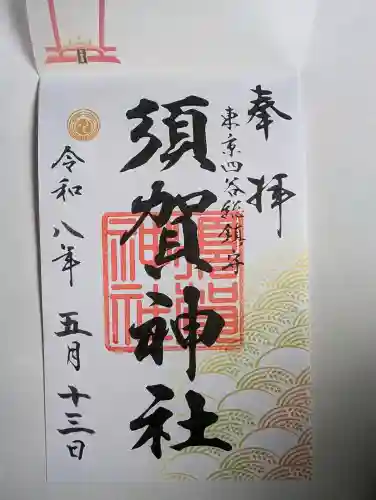 奉拝
東京四谷総鎮守
須賀神社
令和八年五月十三日